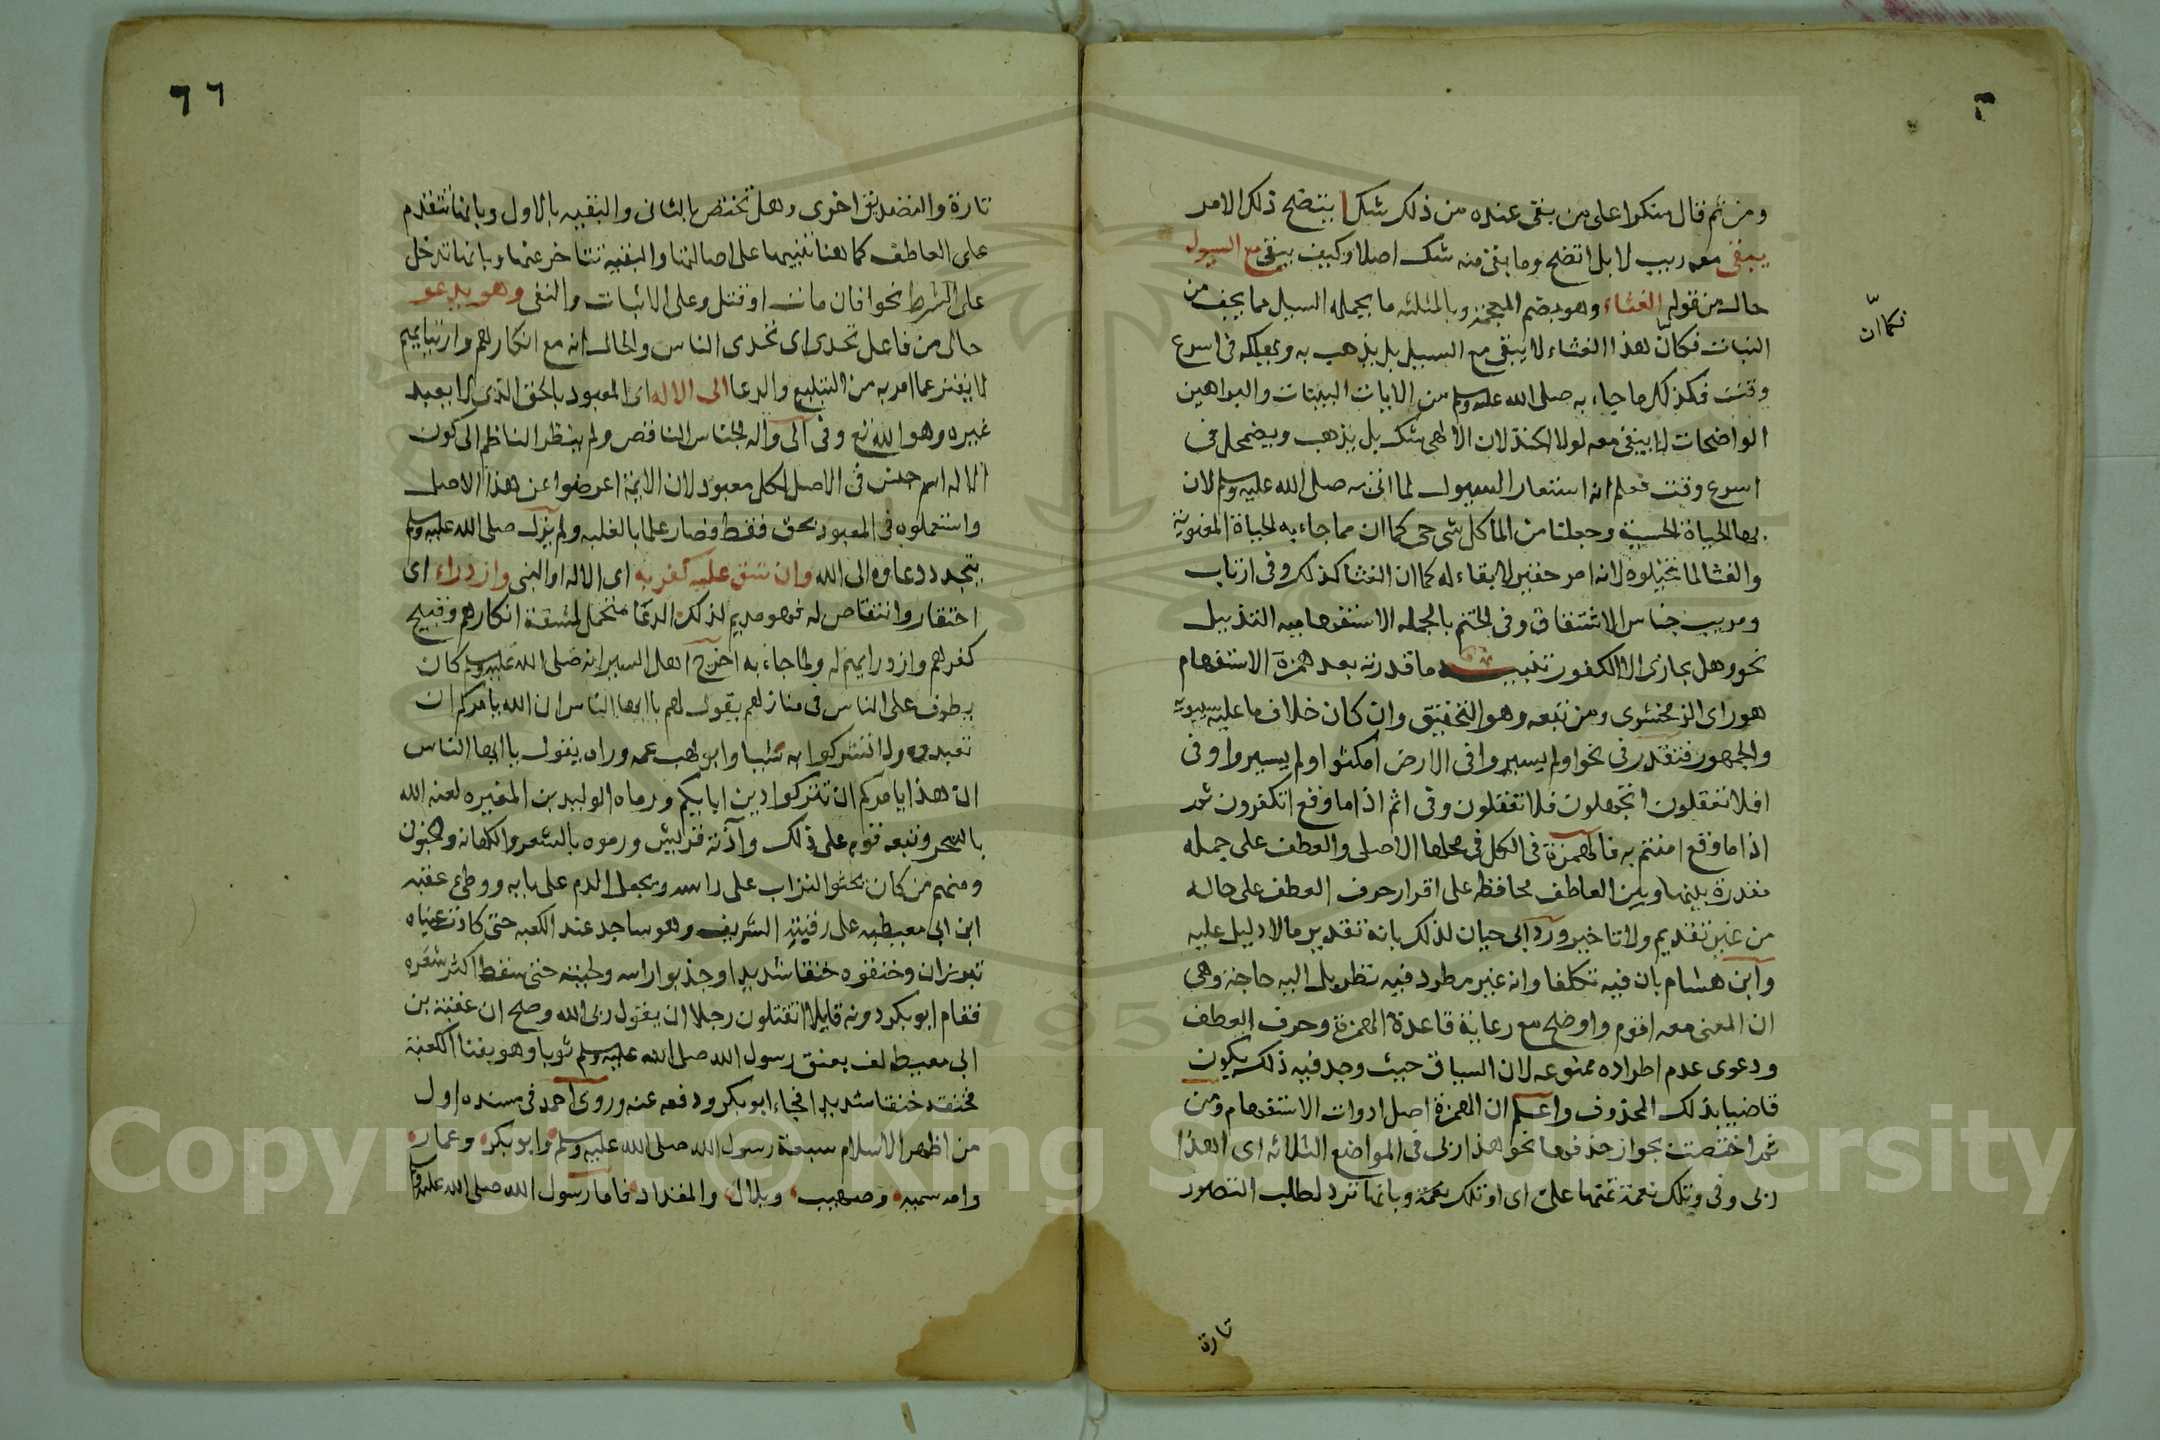 ومن ثم قال منكرا على من بقى عنده من ذلك شك ا يتضح ذلك الامر
يبقى معه ريب لا بل اتضح وما بقى منه شك اصلا وكيف يبقى مع السيول
حال من قوله الغثاء وهو بضم المعجمة وبالمثلثه ما يحمله السيل مما يجف من
النبات فكانّ هذا الغثاء لا يبقى مع السيل بل يذهب به ويهلكه فى اسرع
وقت فكذلك ما جاء به صلى الله عليه وسلم من الايات البينات والبراهين
الواضحات لا يبقى معه لولا الخذلان الالهى شك بل يذهب ويضمحل فى
اسرع وقت فعلم انه استعار السيول لما اتى به صلى الله عليه وسلم لان
بها الحياة الحسية وجعلنا من الما كل شى حى كما ان مما جاء به الحياة المعنوية
والغثا لما تخيلوه لانه امر حقير لا بقاء له كما ان الغثا كذلك وفى ارتاب
ومريب جناس الاشتقاق وفى الختم بالجمله الاستفهاميه التذييل
نحو وهل يجازى الا الكفور تنبيه ما قدرته بعد همزة الاستفهام
هو راى الزمخشرى ومن تبعه وهو التحقيق وان كان خلاف ما عليه سيبويه
والجمهور فتقدر فى نحو اولم يسيروا فى الارض امكثوا ولم يسيروا وفى
افلا تعقلون اتجهلون فلا تعقلون وفى اثم اذا ما وقع اتكفرون ثم
اذا ما وقع امنتم به فالهمزة فى الكل فى محلها الاصلى والعطف على جمله
مقدرة بينها وبين العاطف محافظه على اقرار حرف العطف على حاله
من غير تقديم ولا تاخير ورد ابى حيان لذلك بانه تقدير ما لا دليل عليه
وابن هشام بان فيه تكلفا وانه غير مطرد فيه نظر بل اليه حاجة وهى
ان المعنى معه اقوم واوضح مع رعاية قاعدة الهمزة وحرف العطف
ودعوى عدم اطراده ممنوعه لان السياق حيث وجد فيه ذلك يكون
قاضيا بذلك المحذوف واعلم ان الهمزة اصل ادوات الاستفهام ومن
ثم اختصت بجواز حذفها نحو هذا ربى فى المواضع الثلاثه اى اهذا
ربى وفى وتلك نعمة تمنها على اى اوتلك نعمة وبانها ترد لطلب التصور
تارة
فكما ان
٦٦
تارة والتصديق اخرى وهل تختص بالثانى والبقيه بالاول وبانها تتقدم
على العاطف كما هنا تنبيها على اصالتها والبقية تتاخر عنها وبانها تدخل
على الشرط نحو افان مات او قتل وعلى الاثبات والنفى وهو يدعو
حال من فاعل تحدى اى تحدى الناس والحال انه مع انكارهم وارتيابهم
لا يفتر عما امر به من التبليغ والدعا الى الاله اى المعبود بالحق الذى لا يعبد
غيره وهو الله تع وفى الى واله الجناس الناقص ولم ينظر الناظم الى كون
الاله اسم جنس فى الاصل لكل معبود لان الايمة اعرضوا عن هذا الاصل
واستعملوه فى المعبود بحق فقط فصار علما بالغلبه ولم يزل صلى الله عليه وسلم
يتجدد دعاوه الى الله وان شق عليه كفر به اى الاله او النبى وازدراء اى
احتقار وانتقاص له فهو مديم لذلك الدعا متحمل لمشقة انكارهم وقبيح
كفرهم وازدرايهم له ولما جاء به اخرج اهل السير انه صلى الله عليه وسلم كان
يطوف على الناس فى منازلهم يقول لهم يا ايها الناس ان الله يامركم ان
تعبدوه ولا تشركوا به شيا وابو لهب عمه وراه يقول يا ايها الناس
ان هذا يامركم ان تتركوا دين ابايكم ورماه الوليد بن المغيره لعنه الله
بالسحر وتبعه قومه على ذلك وآذته قريش ورموه بالشعر والكهانه والجنون
ومنهم من كان يحثو التراب على راسه ويجعل الدم على بابه ووطئ عقبه
ابن ابى معيط على رقبته الشريف وهو ساجد عند الكعبه حتى كادت عيناه
تبرزان وخنقوه خنقا شديدا وجذبوا راسه ولحيته حتى سقط اكثر شعره
فقام ابو بكر دونه قايلا اتقتلون رجلا ان يقول ربى الله وصح ان عقبة بن
ابى معيط لف بعنق رسول الله صلى الله عليه وسلم ثوبا وهو بفنا الكعبة
فخنقه خنقا شديدا فجاء ابو بكر ودفعه عنه وروى احمد فى مسنده اول
من اظهر الاسلام سبعة رسول الله صلى الله عليه وسلم وابو بكر وعمار
وامه سميه وصهيب وبلال والمقداد فاما رسول الله صلى الله عليه وسلم
Copyright © King Saud University
1957